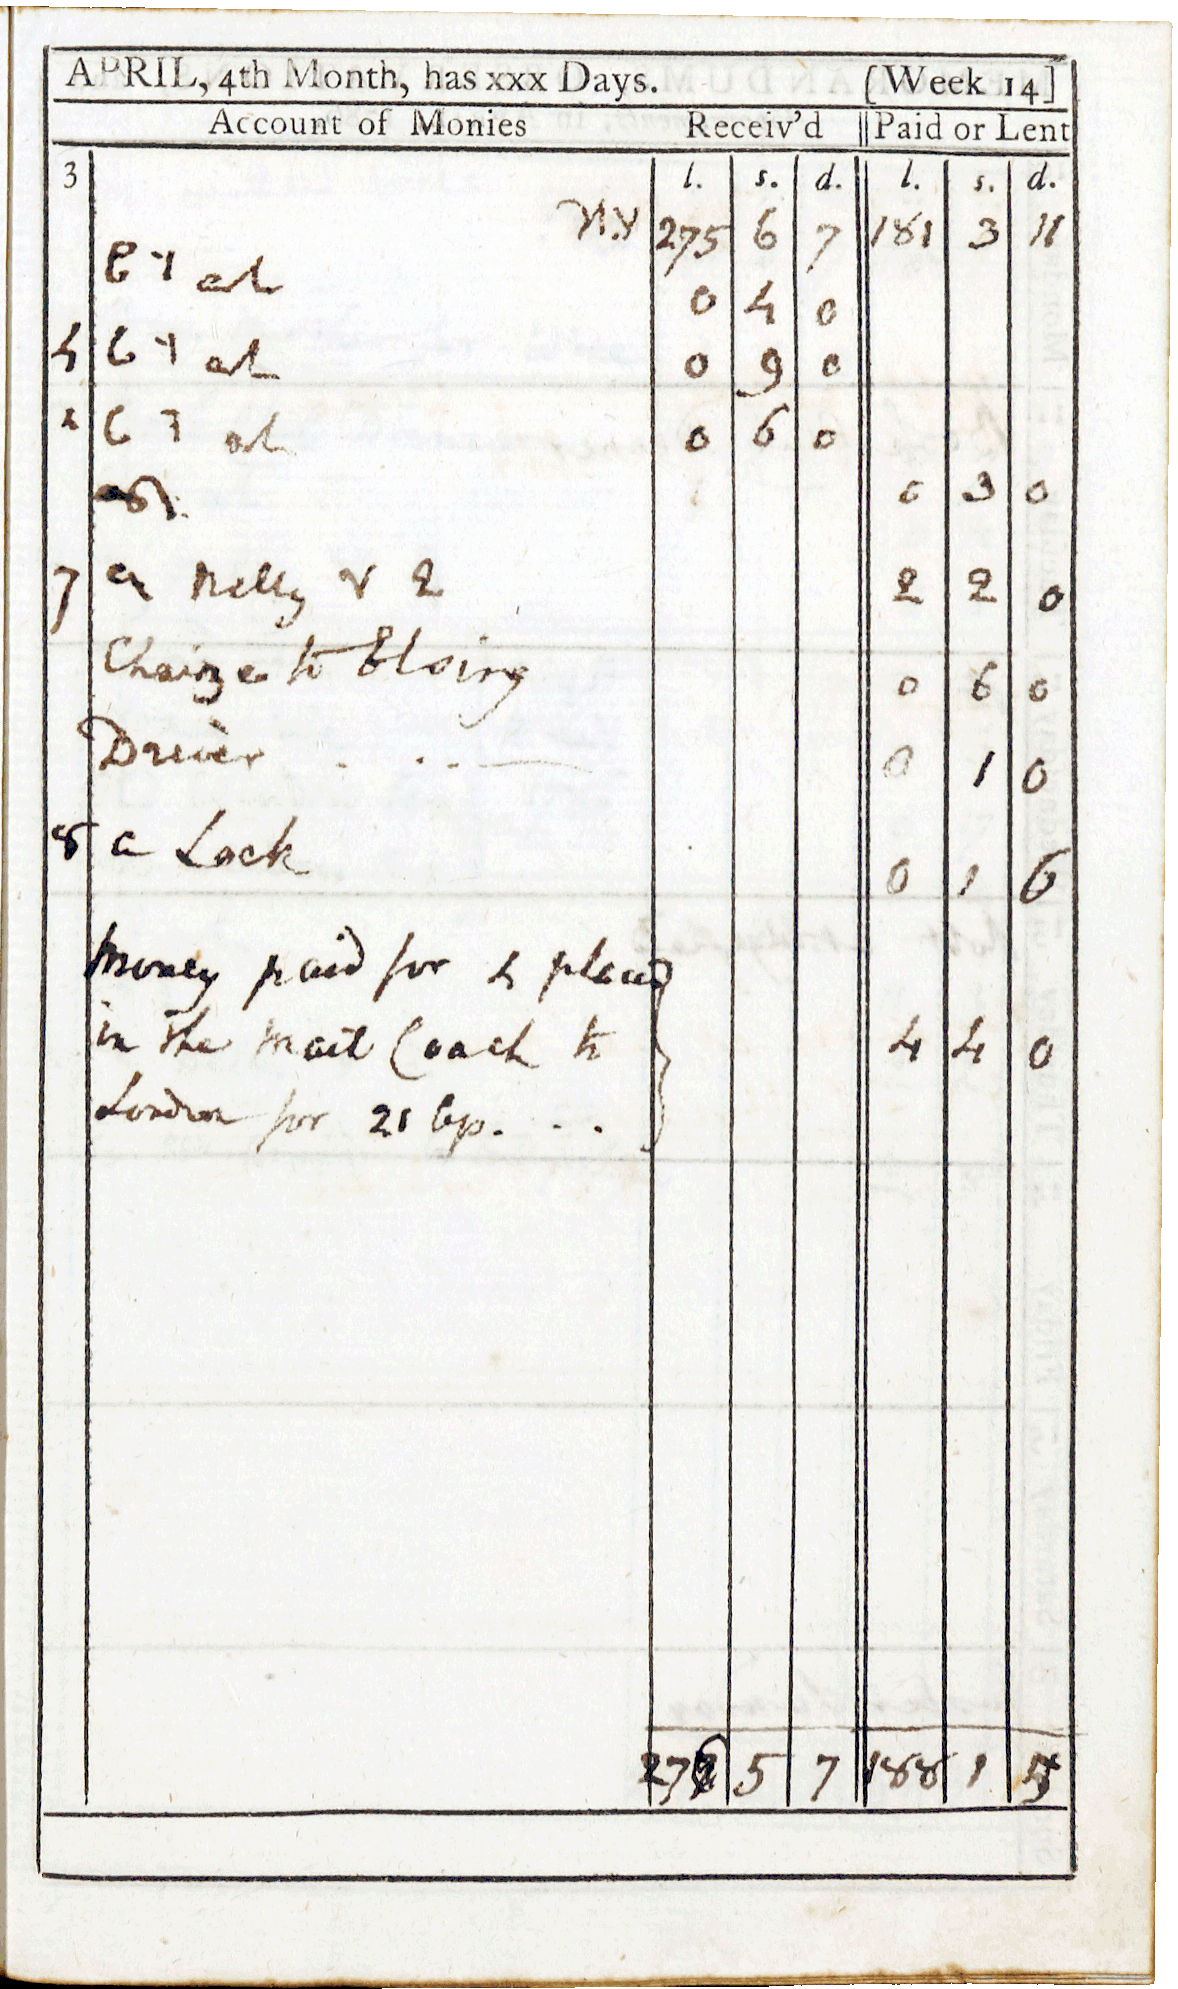 APRIL, 4th Month, has xxx Days. [Week 14]
Account of Monies Receiv'd Paid or Lent
3 l. s. d. l. s. d.
275 6 7 181 3 11
0 4 0
4 0 9 0
0 6 0
0 3 0
7 Nelly 2 2 0
Chaize to 0 6 0
Driver . . . 0 1 0
8 a Lock 0 1 6
Money paid for 4 places
in the Mail Coach to 4 4 0
London for 21 . . .
276 5 7 188 1 5